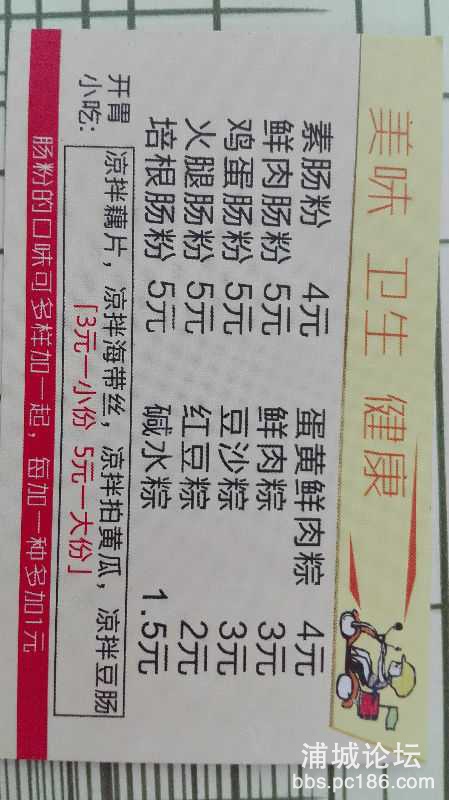 美味 卫生 健康
素肠粉 4元 蛋黄鲜肉粽 4元
鲜肉肠粉 5元 鲜肉粽 3元
鸡蛋肠粉 5元 豆沙粽 3元
火腿肠粉 5元 红豆粽 2元
培根肠粉 5元 碱水粽 1.5元
开胃小吃:
凉拌藕片，凉拌海带丝，凉拌拍黄瓜，凉拌豆肠
「3元一小份 5元一大份」
肠粉的口味可多样加一起，每加一种多加1元
浦城论坛
bbs.pc186.com